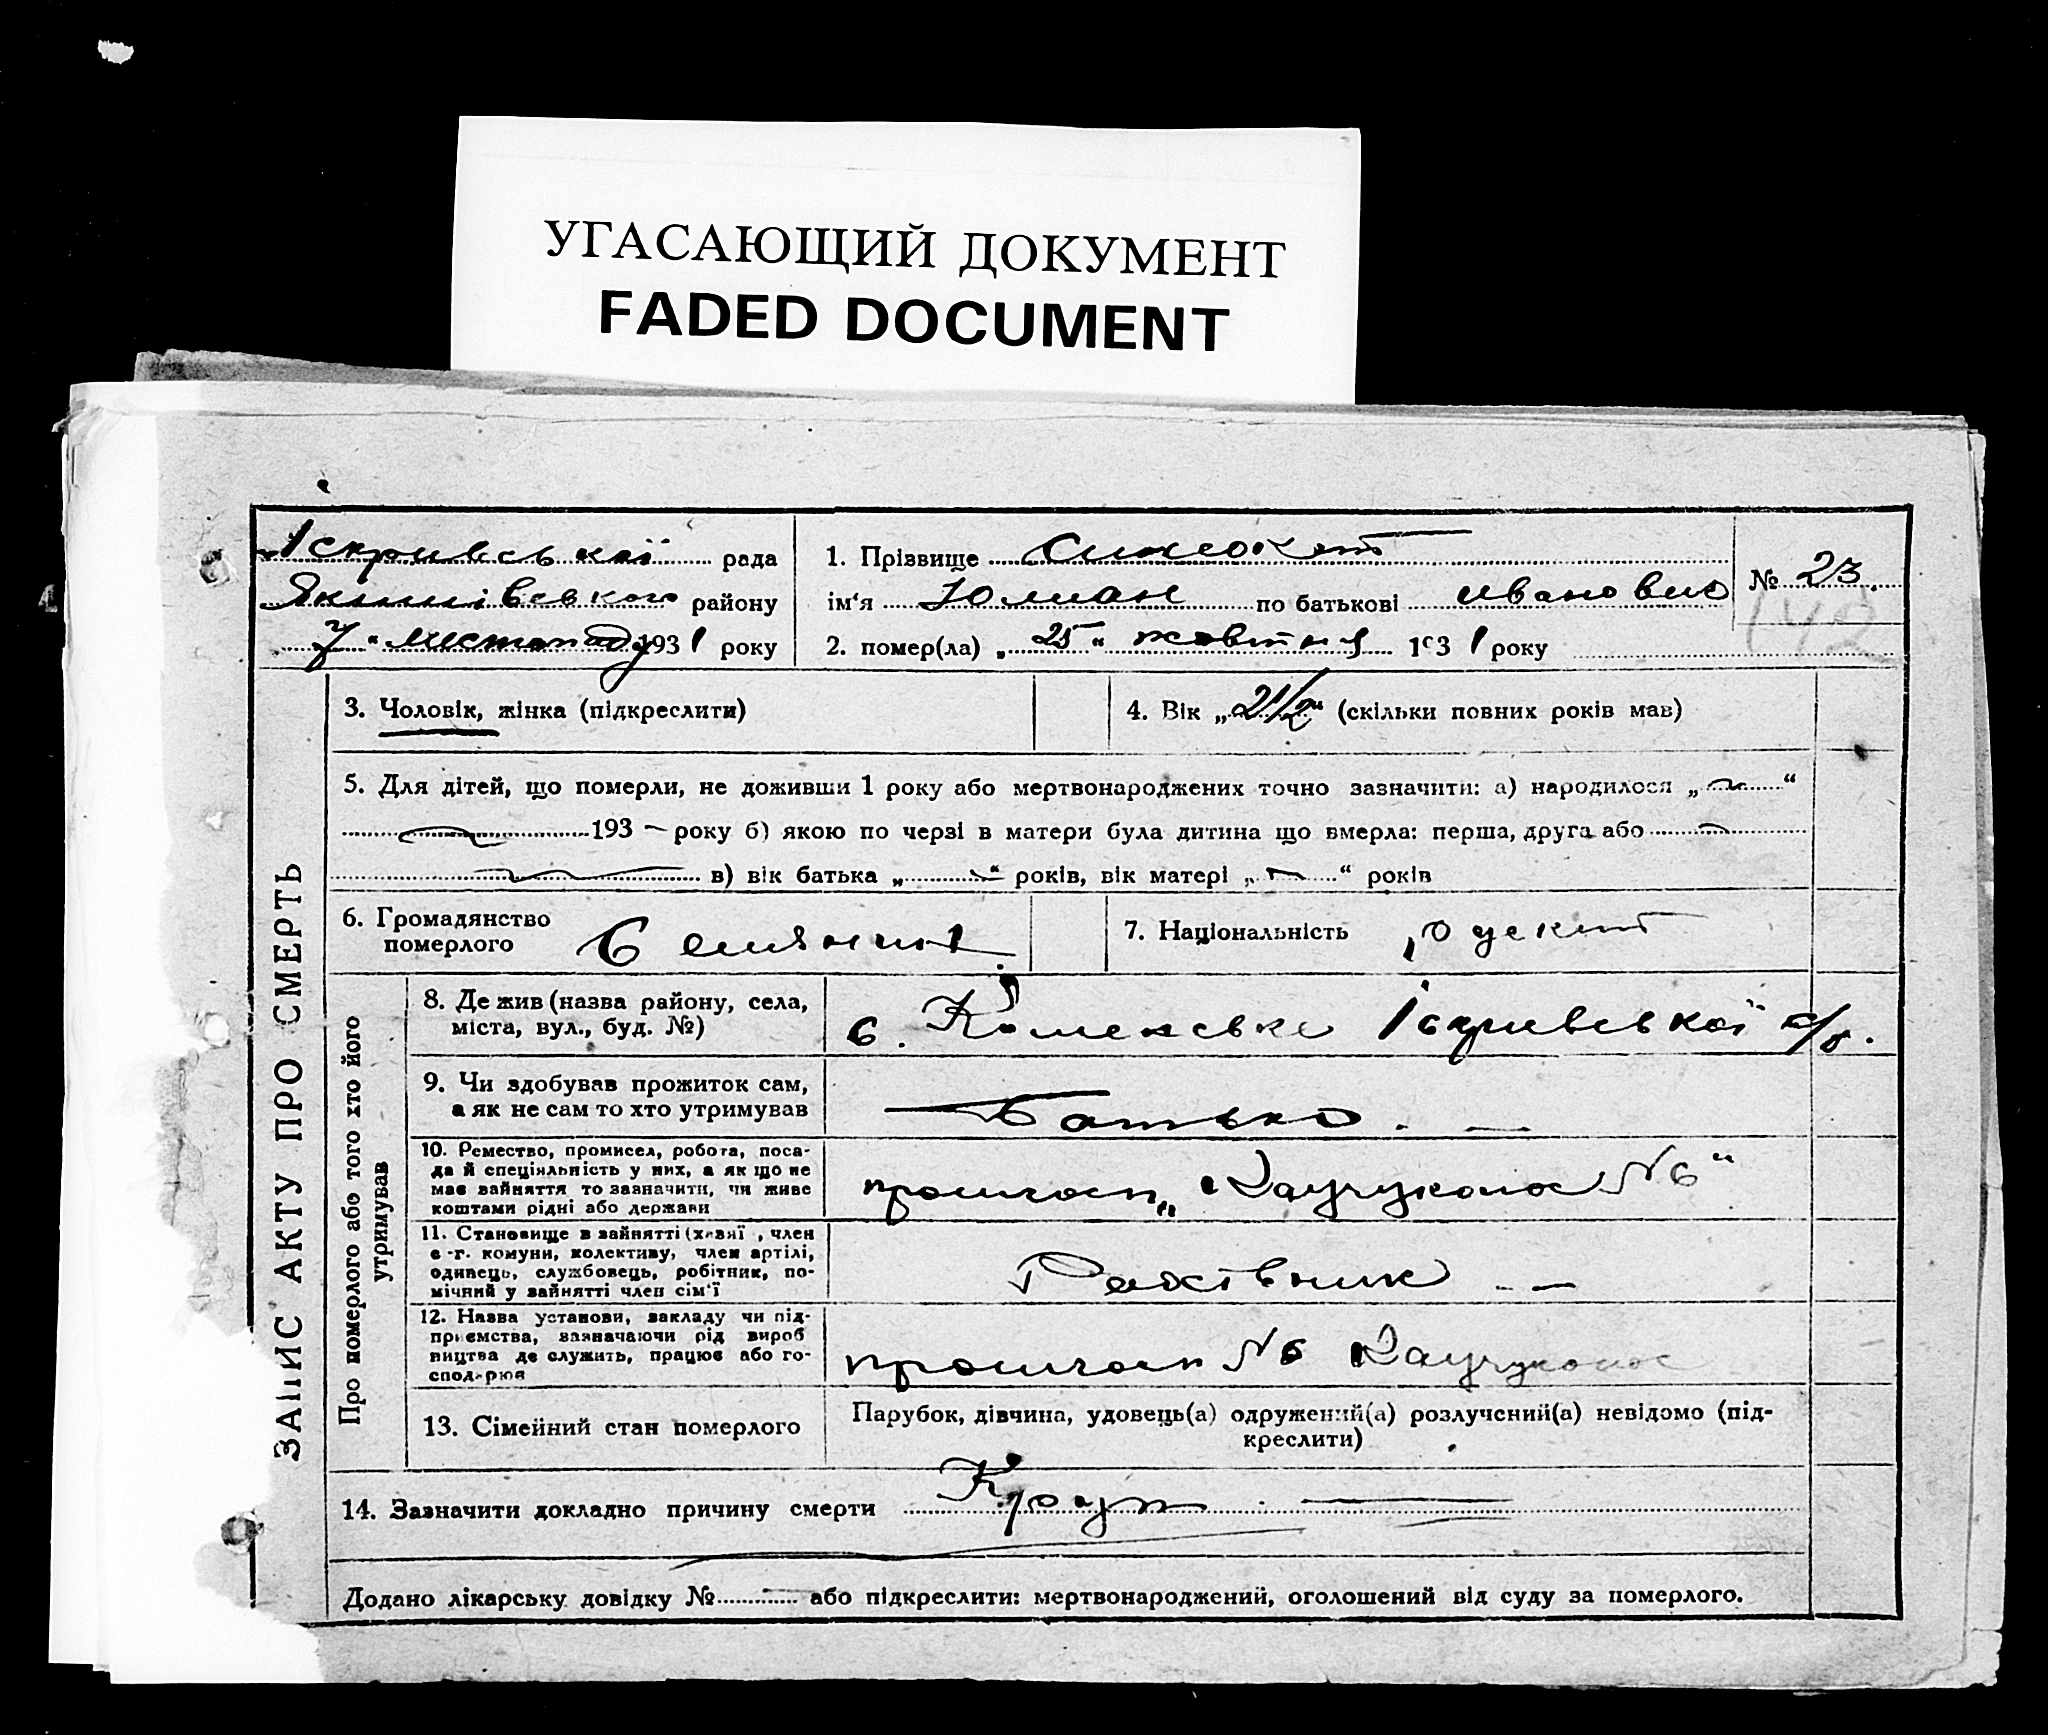 УГАСАЮЩИЙ ДОКУМЕНТ
FADED DOCUMENT
Іскрывської рада
Якимівського району
7 „ листопаду 1931 року
1. Прізвище
ім'я Юлиан по батькові Ивановио
2. помер(ла) „ 25 “ жовтня 1931 року
№ 23
142
ЗАПИС АКТУ ПРО СМЕРТЬ
3. Чоловік, жінка (підкреслити)
4. Вік „ 2 1/2 “ (скільки повних років мав)
5. Для дітей, що померли, не доживши 1 року або мертвонароджених точно зазначити: а) народилося „ “
193 – року б) якою по черзі в матери була дитина що вмерла: перша, друга або
в) вік батька „ “ років, вік матері „ “ років
6. Громадянство
померлого Селянин
7. Національність руский
Про померлого або того хто його
утримував
8. Де жив (назва району, села,
міста, вул., буд. №)
с. Коменське Іскривської с/р.
9. Чи здобував прожиток сам,
а як не сам то хто утримував
Батько. —
10. Ремество, промисел, робота, поса-
да й спеціяльність у них, а як що не
має вайняття то зазначити, чи живе
коштами рідні або держави
„ Каучуконос № 6 “
11. Становище в вайнятті (хазяї, член
с.-г. комуни, колективу, член артілі,
одинець, службовець, робітник, по-
мічний у вайнятті член сім'ї
Робітник - —
12. Назва установи, закладу чи під-
приємства, зазначаючи рід вироб
ництва де служить, працює або го-
сподарює
№ 6 Каучуконос
13. Сімейний стан померлого
Парубок, дівчина, удовець(а) одружений(а) розлучений(а) невідомо (під-
креслити)
14. Зазначити докладно причину смерти Круп
Додано лікарську довідку № або підкреслити: мертвонароджений, оголошений від суду за померлого.